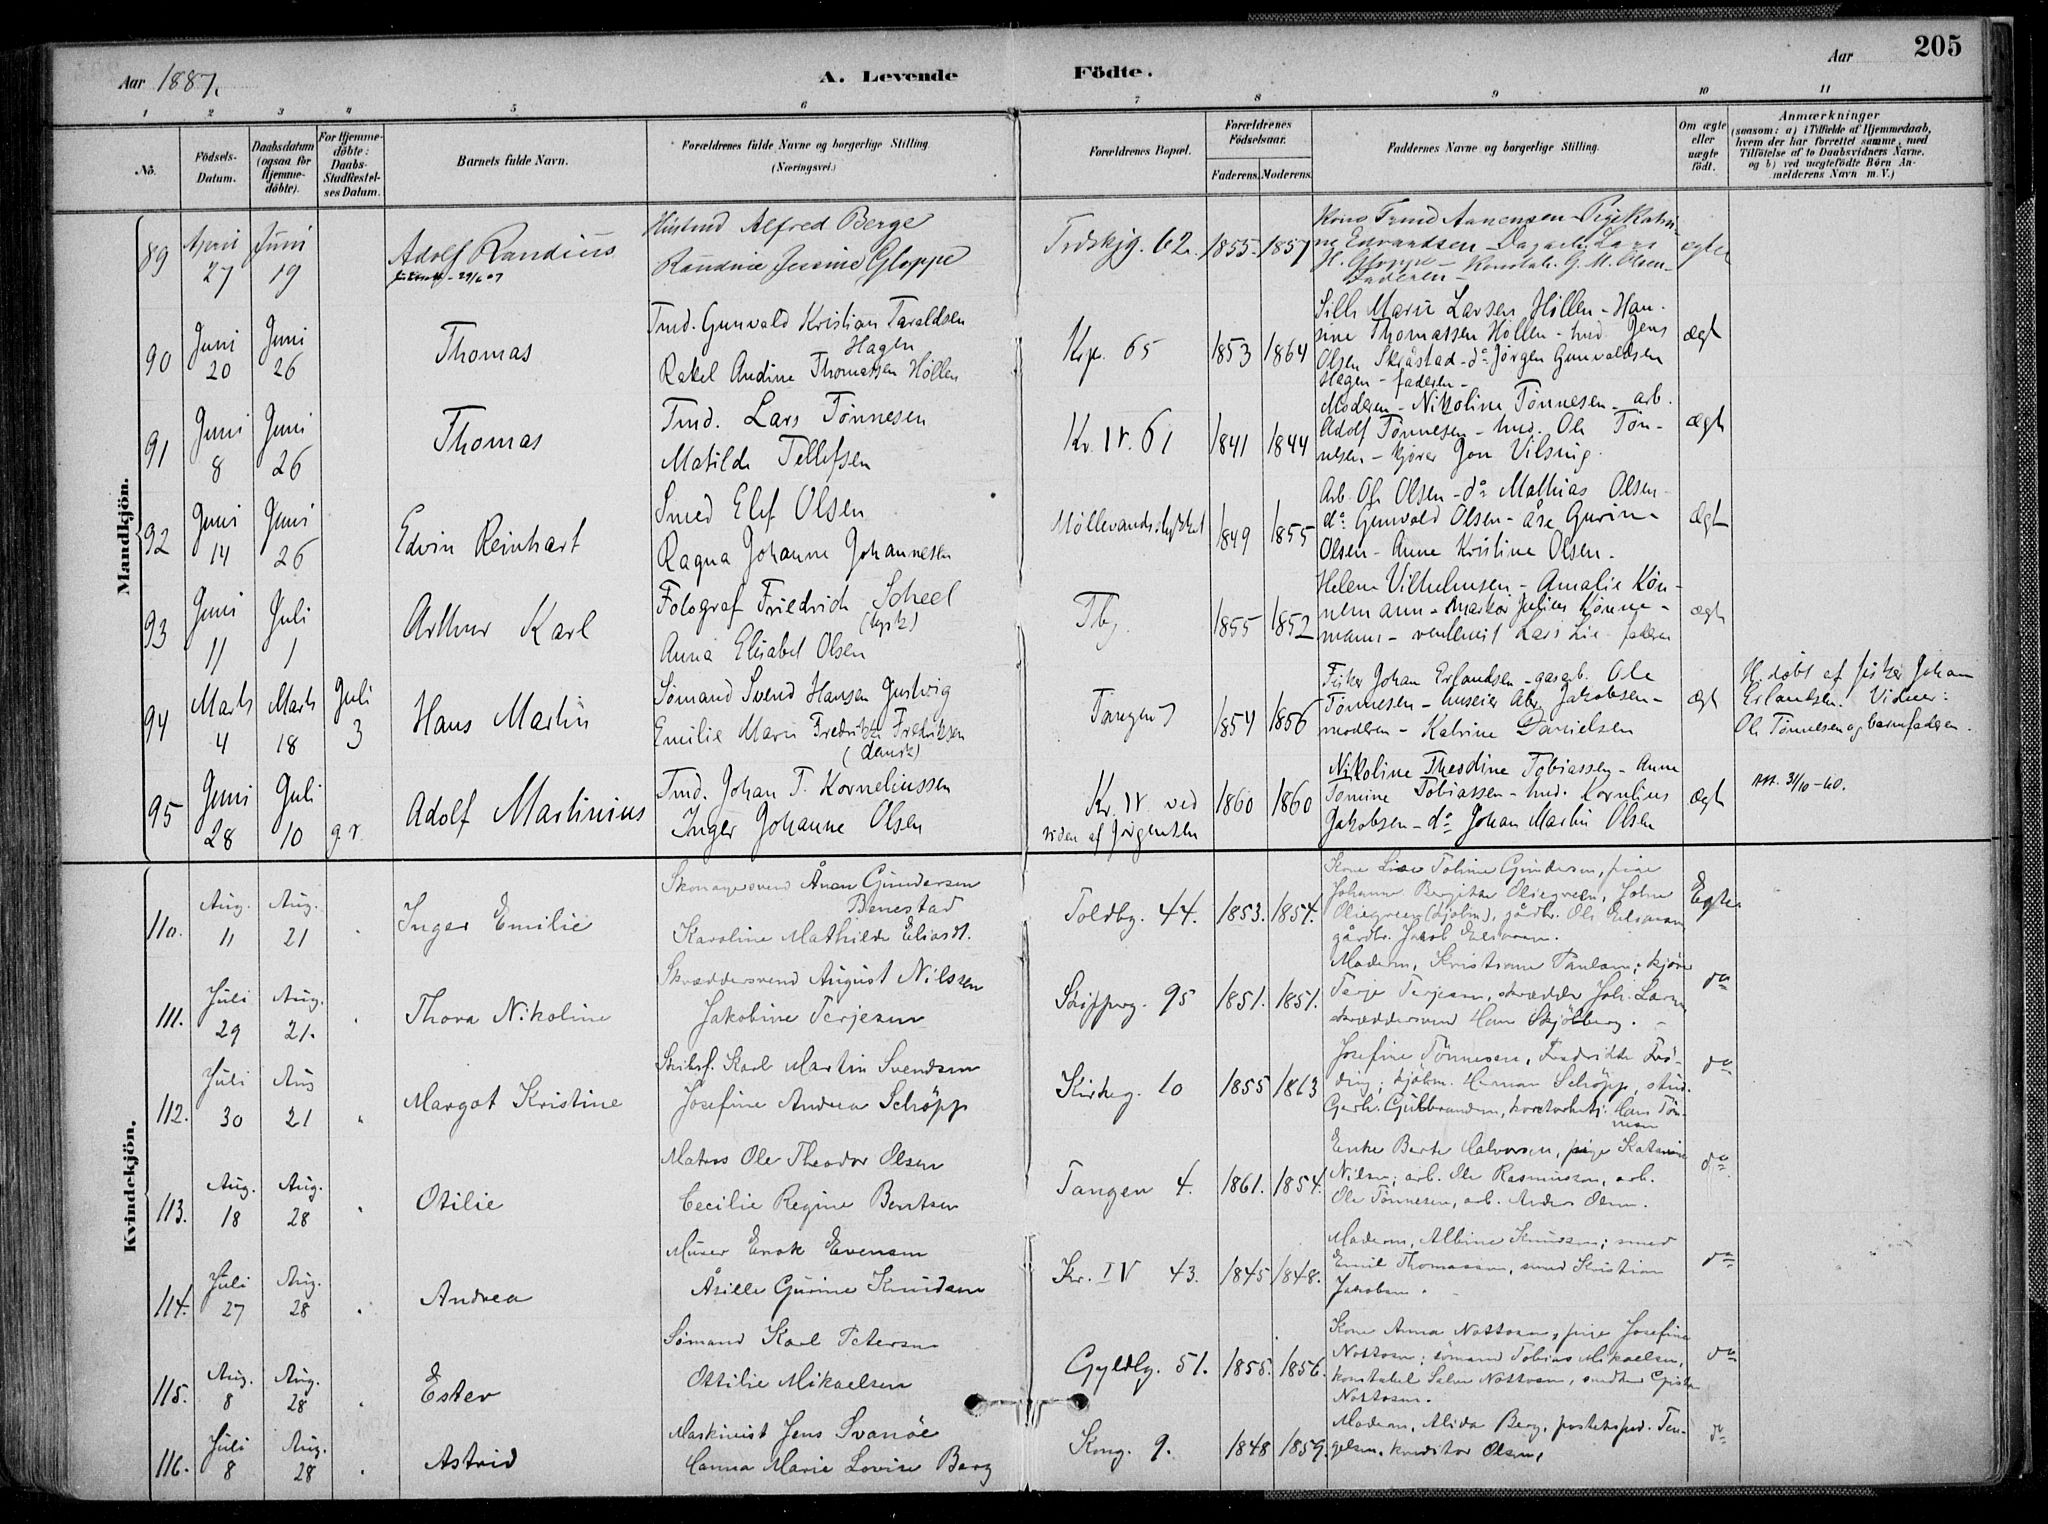 205
Aar 1887.
A. Levende Födte.
Aar
1 2 3 4 5 6 7 8 9 10 11
No.
Födsels-Datum.
Daabsdatum (ogsaa for Hjemme-döbte).
For Hjemme-döbte: Daabs-Stadfæstel-ses Datum.
Barnets fulde Navn.
Forældrenes fulde Navne og borgerlige Stilling.
(Næringsvei.)
Forældrenes Bopæl.
Forældrenes Födselsaar.
Faderens. Moderens.
Faddernes Navne og borgerlige Stilling.
Om ægte eller uægte födt.
Anmærkninger
(saasom: a) i Tilfælde af Hjemmedaab,
hvem der har forrettet samme, med
Tilföielse af to Daabsvidners Navne,
og b) ved uægtefödte Börn An-
melderens Navn m. V.)
Mandkjön.
89 April 27 Juni 19
Adolf Randius
Alfred Berge
Randine Jensine Gloppe
62. 1855. 1857
90 Juni 20 Juni 26
Thomas
Tmd. Gunvald Kristian Taraldsen
Hagen
Rakel Andine Thomassen Höllen
65 1853 1864
Sille Marie Larsen Höllen - Han-
sine Thomassen Höllen - tmd. Jens
Olsen Skråstad - do Jörgen Gunvaldsen
Hagen - faderen -
ægt
91 Juni 8 Juni 26
Thomas
Tmd. Lars Tönnesen
Matilde Tellefsen
Kv. IV. 61 1841 1844
Moderen - Nikoline Tönnesen - arb.
Adolf Tönnesen - tmd. Ole Tön-
nesen - kjörer Jon
ægt
92 Juni 14 Juni 26
Edvin Reinhart
Smed Elef Olsen
Ragna Johanne Johannesen
1849 1855
Arb. Ole Olsen - do Mathias Olsen -
do Gunvald Olsen - Åse Gurine
Olsen - Anne Kristine Olsen.
ægt
93 Juni 11 Juli 1
Arthur Karl
Fotograf Friedrich Scheel
(tysk)
Anna Elisabet Olsen
Tbg. 1855 1852
Helene Vilhelmsen - Amalie Kön-
nemann - Julius Könne-
mann - Lars Lie - faderen
ægt
94 Marts 4 Marts 18 Juli 3
Hans Martin
Sömand Svend Hansen Justvig
Emilie Marie Fredrikke Fredriksen
(dansk)
Tangen 7 1854 1856
Fisker Johan Erlandsen - gasarb. Ole
Tönnesen - huseier Abr. Jakobsen -
moderen - Katrine Danielsen
ægt
H. döbt af fisker Johan
Erlandsen. Vidner:
Ole Tönnesen og barnefaderen.
95 Juni 28 Juli 10 g.r.
Adolf Martinius
Tmd. Johan T. Korneliussen
Inger Johanne Olsen
Kv. IV. ved
siden af Jörgensen
1860 1860
Nikoline Theodine Tobiassen - Anne
Tomine Tobiassen - tmd. Kornelius
Jakobsen - do Johan Martin Olsen
ægt
31/10 - 40.
Kvindekjön.
110. Aug. 11 Aug. 21
Inger Emilie
Skomagersvend Ånen Gundersen
Benestad
Karoline Mathilde Eliasdt.
Toldbg. 44. 1853. 1854.
Kone Lise Toline Gundersen, pige
Johanne Bergitte
Ole Eliassen
gårdbr. Jakob Eliassen.
Egte
111. Juli 29 Aug. 21.
Thora Nikoline
Skræddersvend August Nilssen
Jakobine Terjesen
Skippergt. 95 1851. 1851.
Moderen, Kristiane Paulsen; kjörer
Terje Terjesen, skrædder Joh. Larsen
skræddersvend Hans Skjölberg.
do
112. Juli 30 Aug 21
Margot Kristine
Karl Martin Svendsen
Josefine Andrea Schöpp
Kirkeg. 10 1855 1863
Josefine Tönnesen, Fredrikke Frö-
ding; kjöbm. Herman Schöpp, stud.
Gerh. Gulbrandsen, Hans Tön-
nesen
do
113. Aug. 18 Aug. 28
Otilie
Matros Ole Theodor Olsen
Cecilie Regine Berntsen
Tangen 4. 1861. 1854.
Enke Berte Halvorsen, pige Katrine
Nilsen; arb. Ole Rasmussen, arb.
Ole Tönnesen, arb. Anders Olsen.
do
114. Juli 27 Aug. 28
Andrea
Murer Enok Evensen
Åsille Gurine Knudsen
Kv. IV 43. 1845 1848.
Moderen, Albine Knudsen; smed
Emil Thomassen, smed Kristian
Jakobsen.
do
115. Aug. 8 Aug. 28
Ester
Sömand Karl Petersen
Ottilie Mikaelsen
Gyldlg. 51. 1855. 1856.
Kone Anna Nottosen, pige Josefine
Nottosen; sömand Tobias Mikaelsen,
konstabel Salve Nottosen,
Nottosen.
do
116. Juli 8 Aug. 28
Astrid
Maskinist Jens Svanöe
Hanna Marie Lovise Berg
Kong. 9. 1848 1859.
Moderen, Alida Berg, postexped. Ten-
gelsen, konditor Olsen,
do